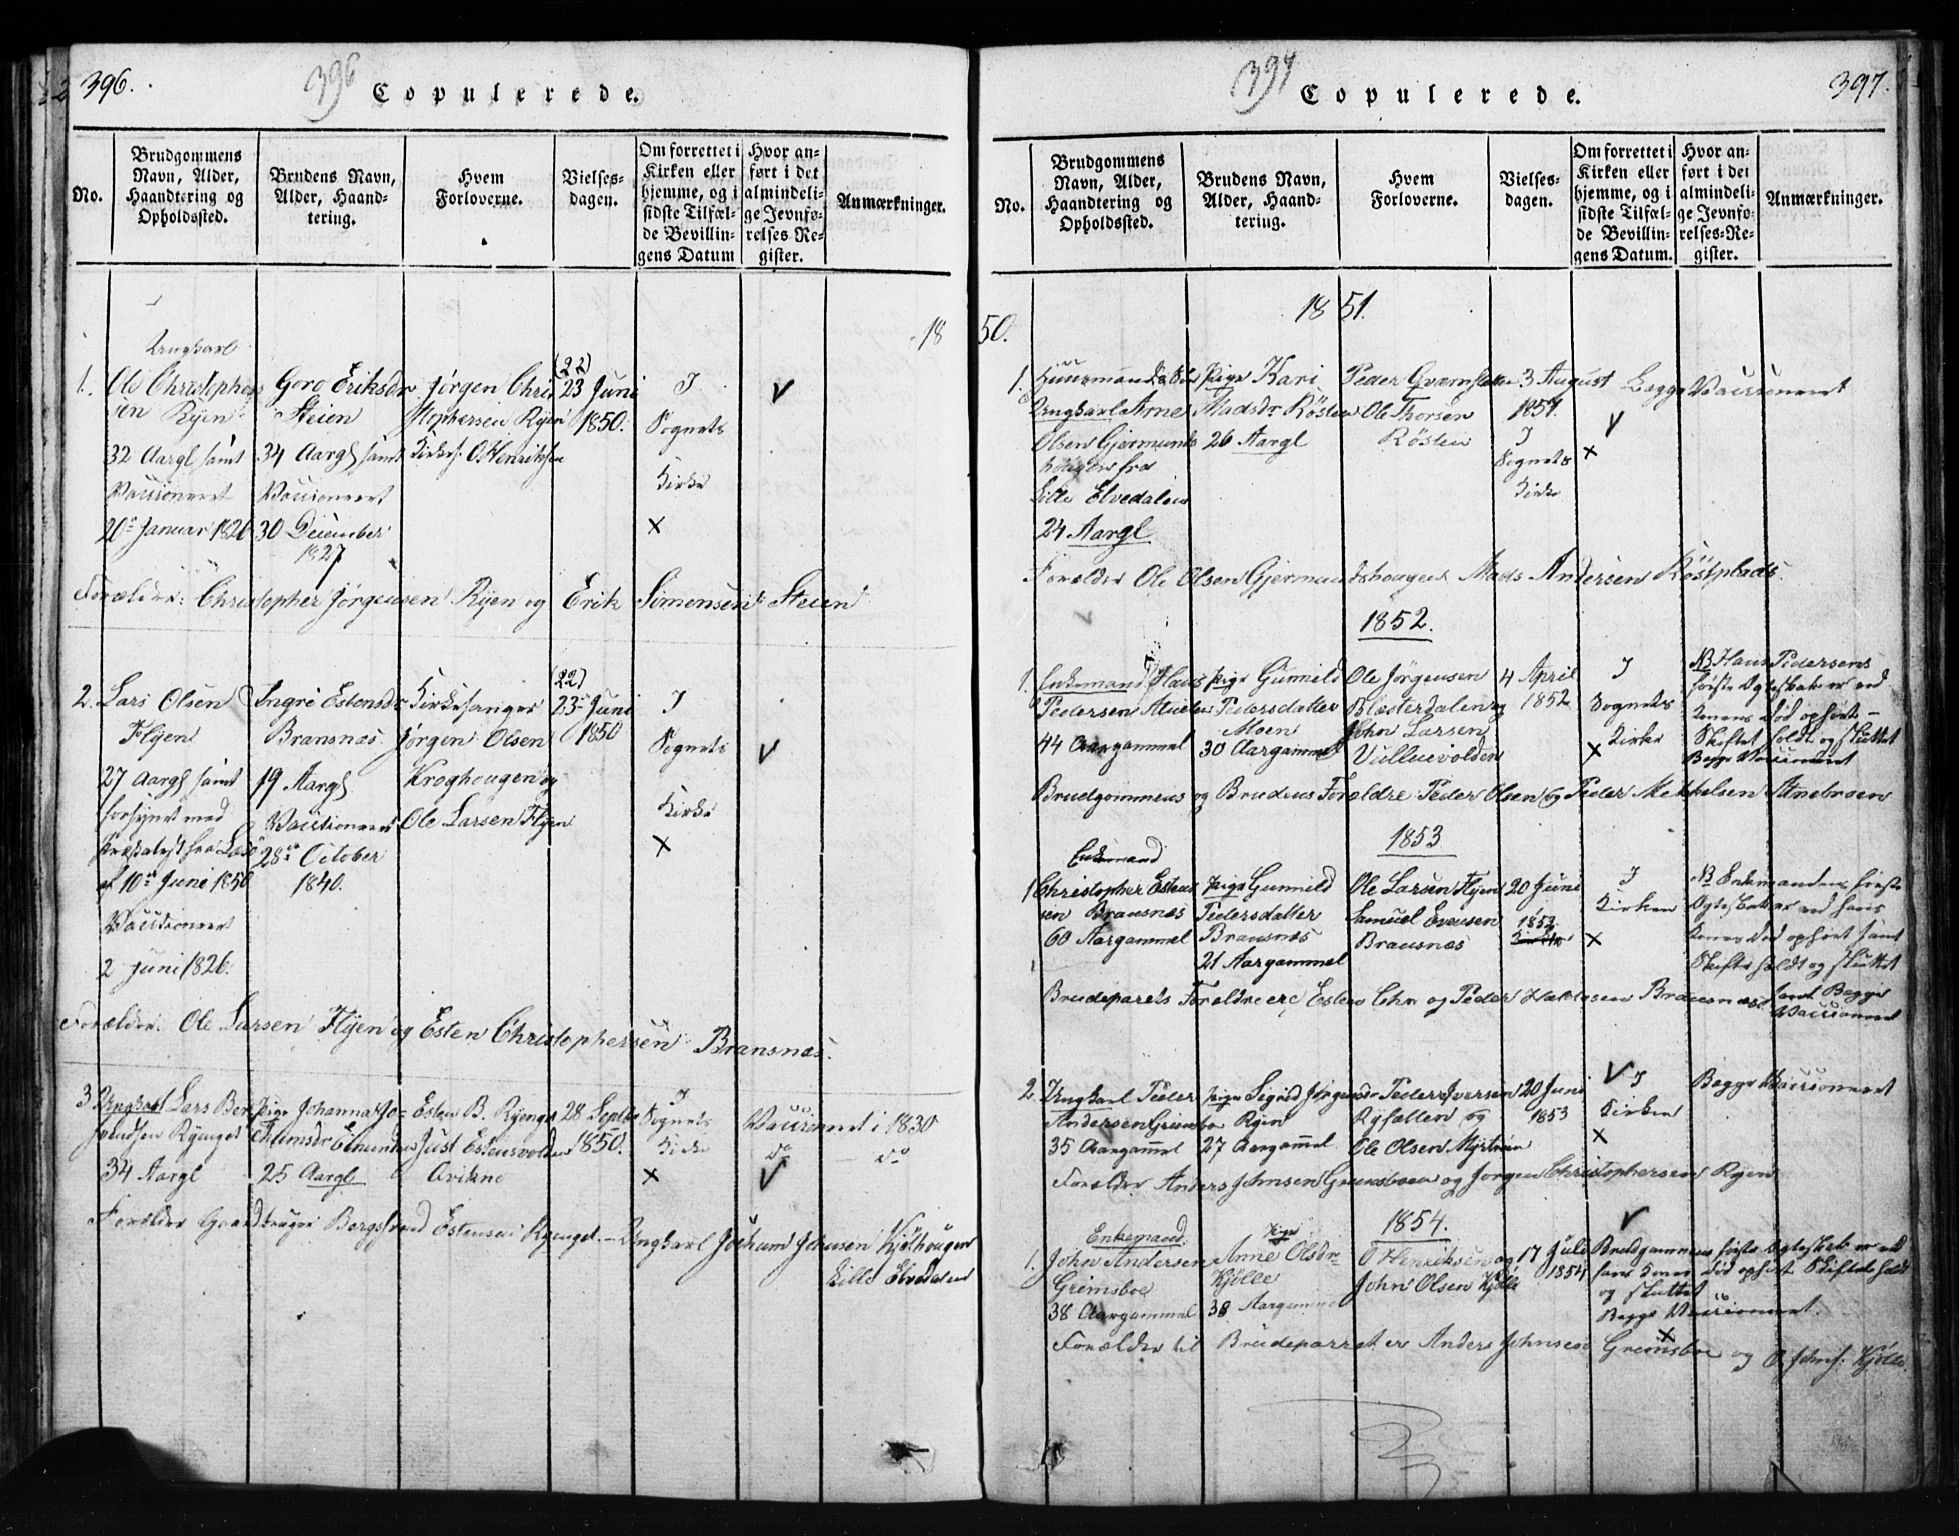 396.
396
Copulerede.
No.
Brudgommens Navn, Alder, Haandtering og Opholdssted.
Brudens Navn, Alder, Haandtering.
Hvem Forloverne.
Vielsesdagen.
Om forrettet i Kirken eller hjemme, og i sidste Tilfælde Bevillingens Datum
Hvor anført i det almindelige Jevnførelses-Register.
Anmærkninger.
1850.
1.
Ungkarl
Ole Christophersen Ryen
32 Aargl samt
Vaccioneret
20de Januar 1826
Goro Eriksdr
Steien
34 Aargl samt
Vaccioneret
30 December
1827
Jørgen Christophersen Ryen
Kirkes. O Henriksen
(22)
23 Juni
1850.
I
Sognets
Kirke
X
Forælder: Christopher Jørgensen Ryen og Erik Simensen Steien
2.
Lars Olsen
Flyen
27 Aargl samt
forsynet med
Præstatest fra
af 10de Juni 1850
Vaccioneret
2 Juni 1826.
Ingri Estensdr
Bransnæs
19 Aargl
Vaccioneret
28de October
1840.
Kirkesanger
Jørgen Olsen
Kroghougen og
Ole Larsen Flyen
(22)
23 Juni
1850
I
Sognets
Kirke
X
Forælder. Ole Larsen Flyen og Esten Christophersen Bransnæs.
3
Ungkarl Lars Bersvendsen Ryenget
34 Aargl
Pige Johanna Jochumsdr
25 Aargl
Esten B. Ryenget
Just Estensvolden
Qvikne
28 Septbr
1850.
I
Sognets
Kirke
X
Vaccioneret i 1830
do do
Forælder Gaardbruger Estensen Ryenget. – Ungkarl Jochum Johnsen Kjølhougen
Lille Elvedalen
397
Copulerede.
397.
No.
Brudgommens Navn, Alder, Haandtering og Opholdssted.
Brudens Navn, Alder, Haandtering.
Hvem Forloverne.
Vielsesdagen.
Om forrettet i Kirken eller hjemme, og i sidste Tilfælde Bevillingens Datum.
Hvor anført i det almindelige Jevnførelses-Register.
Anmærkninger.
1851.
1.
Huusmands Søn
Ungkarl Arne
Olsen Gjermundshougen fra
Lille Elvedalen
24 Aargl
Pige Kari
Madsdr Røsten
26 Aargl
Peder
Ole Thorsen
Røsten
3 August
1851.
I
Sognets
Kirke
X
Begge Vaccioneret
Forælder Ole Olsen Gjermundshougen Mads Andersen Røstplads.
1852.
1.
Enkemand Hans
Pedersen
44 Aargammel
Pige Gunild
Pedersdatter
Moen
30 Aargammel
Ole Jørgensen
Blæsterdalen og
John Larsen
Vulluvolden
4 April
1852
I
Sognets
Kirke
X
NB Hans Pedersens
første Ægteskab er ved
Konens Død ophørt –
Skiftet holdt og sluttet
Begge Vaccioneret
Brudgommens og Brudens Forældre Peder Olsen og Peder Mekkelsen Stenebroen
1853
1
Enkemand
Christopher Estensen Bransnæs
60 Aargammel
Pige Gunnild
Pedersdatter
Bransnæs
21 Aargammel
Ole Larsen Flyen
Samuel Evensen
Bransnæs
20 Juni
1853
I
Kirken
X
NB Enkemandens første
Ægteskab er ved hans
Kones Død ophørt samt
Skifte holdt og sluttet
samt Begge
Vaccioneret
Brudeparets Forældre ere Esten Chr og Peder Haldosen Bransnæs
2.
Ungkarl Peder
Andersen Grimsboe
35 Aargammel
Pige Sigrid Jørgensdr
Ryen
27 Aargammel
Peder Iversen
Rysletten og
Ole Olsen Myrtrøen
20 Juni
1853
I
Kirken
X
Begge Vaccioneret
Forælder Anders Johnsen Grimsboen og Jørgen Christophersen Ryen
1854.
1.
Enkemand
John Andersen
Grimsboe
38 Aargammel
Pige
Anne Olsdr
Kjølle
38 Aargammel
O Henriksen og
John Olsen Kjølle
17 Juli
1854
Brudgommens første Ægteskab er ved
hans Kones Død ophørt Skiftet holdt
og sluttet
Begge Vaccioneret.
X
Forælder til Brudeparret er Anders Johnsen Grimsboe og O. Johns. Kjølle.